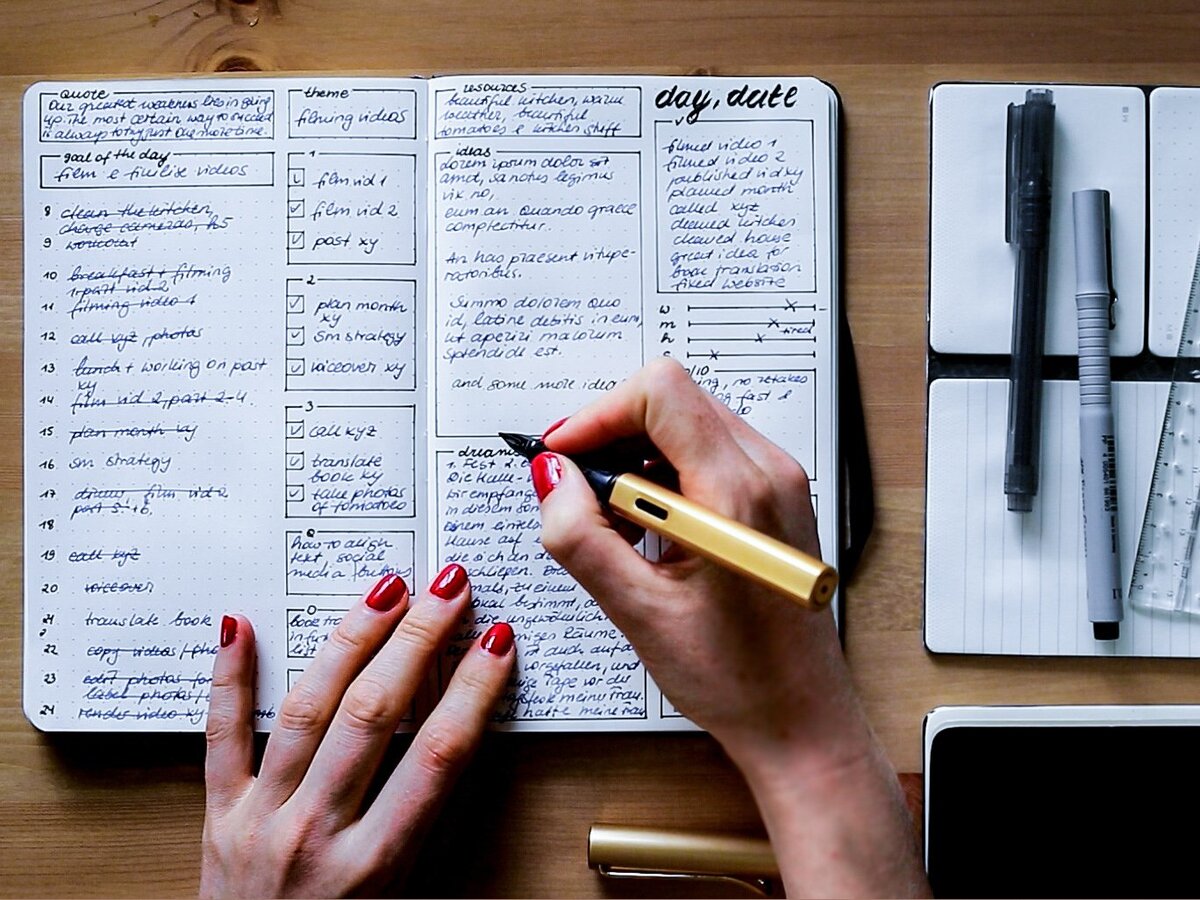 quote
Our greatest weakness lies in giving
up. The most certain way to succeed
is always to try just one more time.
goal of the day
film e finilise videos
8 clean the kitchen,
charge cameras,
9 workout
10 breakfast + filming
1 part vid 2
11 filming video 1
12 call xyz, photos
13 lunch + working on post
xy
14 film vid 2, part 2-4
15 plan month xy
16 sm strategy
17 film vid 2
part 5.+6.
18
19 call xyz
20 voiceover
21 translate book
22 copy videos/
23 edit photos for
label photos/
24 render video xy
theme
filming videos
1
film vid 1
film vid 2
post xy
2
plan month
xy
sm strategy
voiceover xy
3
call xyz
translate
book xy
take photos
of tomatoes
how to align
text social
media buttons
resources
beautiful kitchen, warm
weather, beautiful
tomatoes e kitchen stuff
ideas
dorem ipsum dolor sit
amet, sanctus legimus
vix no,
eum an quando graece
complectitur.
An has praesent vitupe-
ratoribus.
Summo dolorem quo
id, latine debitis in eum,
ut aperiri malorum
splendide est.
and some more idea
dreams
1. Fest
Die Halle
bir empfang
in diesem
einem einzel
Hause auf
die sich an
schließen.
mals, zu einem
bestimmt, da
die ungewöhnlich
Räume.
auch auf
vorgefallen, und
Tage vor der
meiner Frau.
hatte meine Frau
day, date
filmed video 1
filmed video 2
published vid xy
planned month
called xyz
cleaned kitchen
cleaned house
great idea for
book translation
fixed website
w
m
tired
h
/10
no retakes
fast &